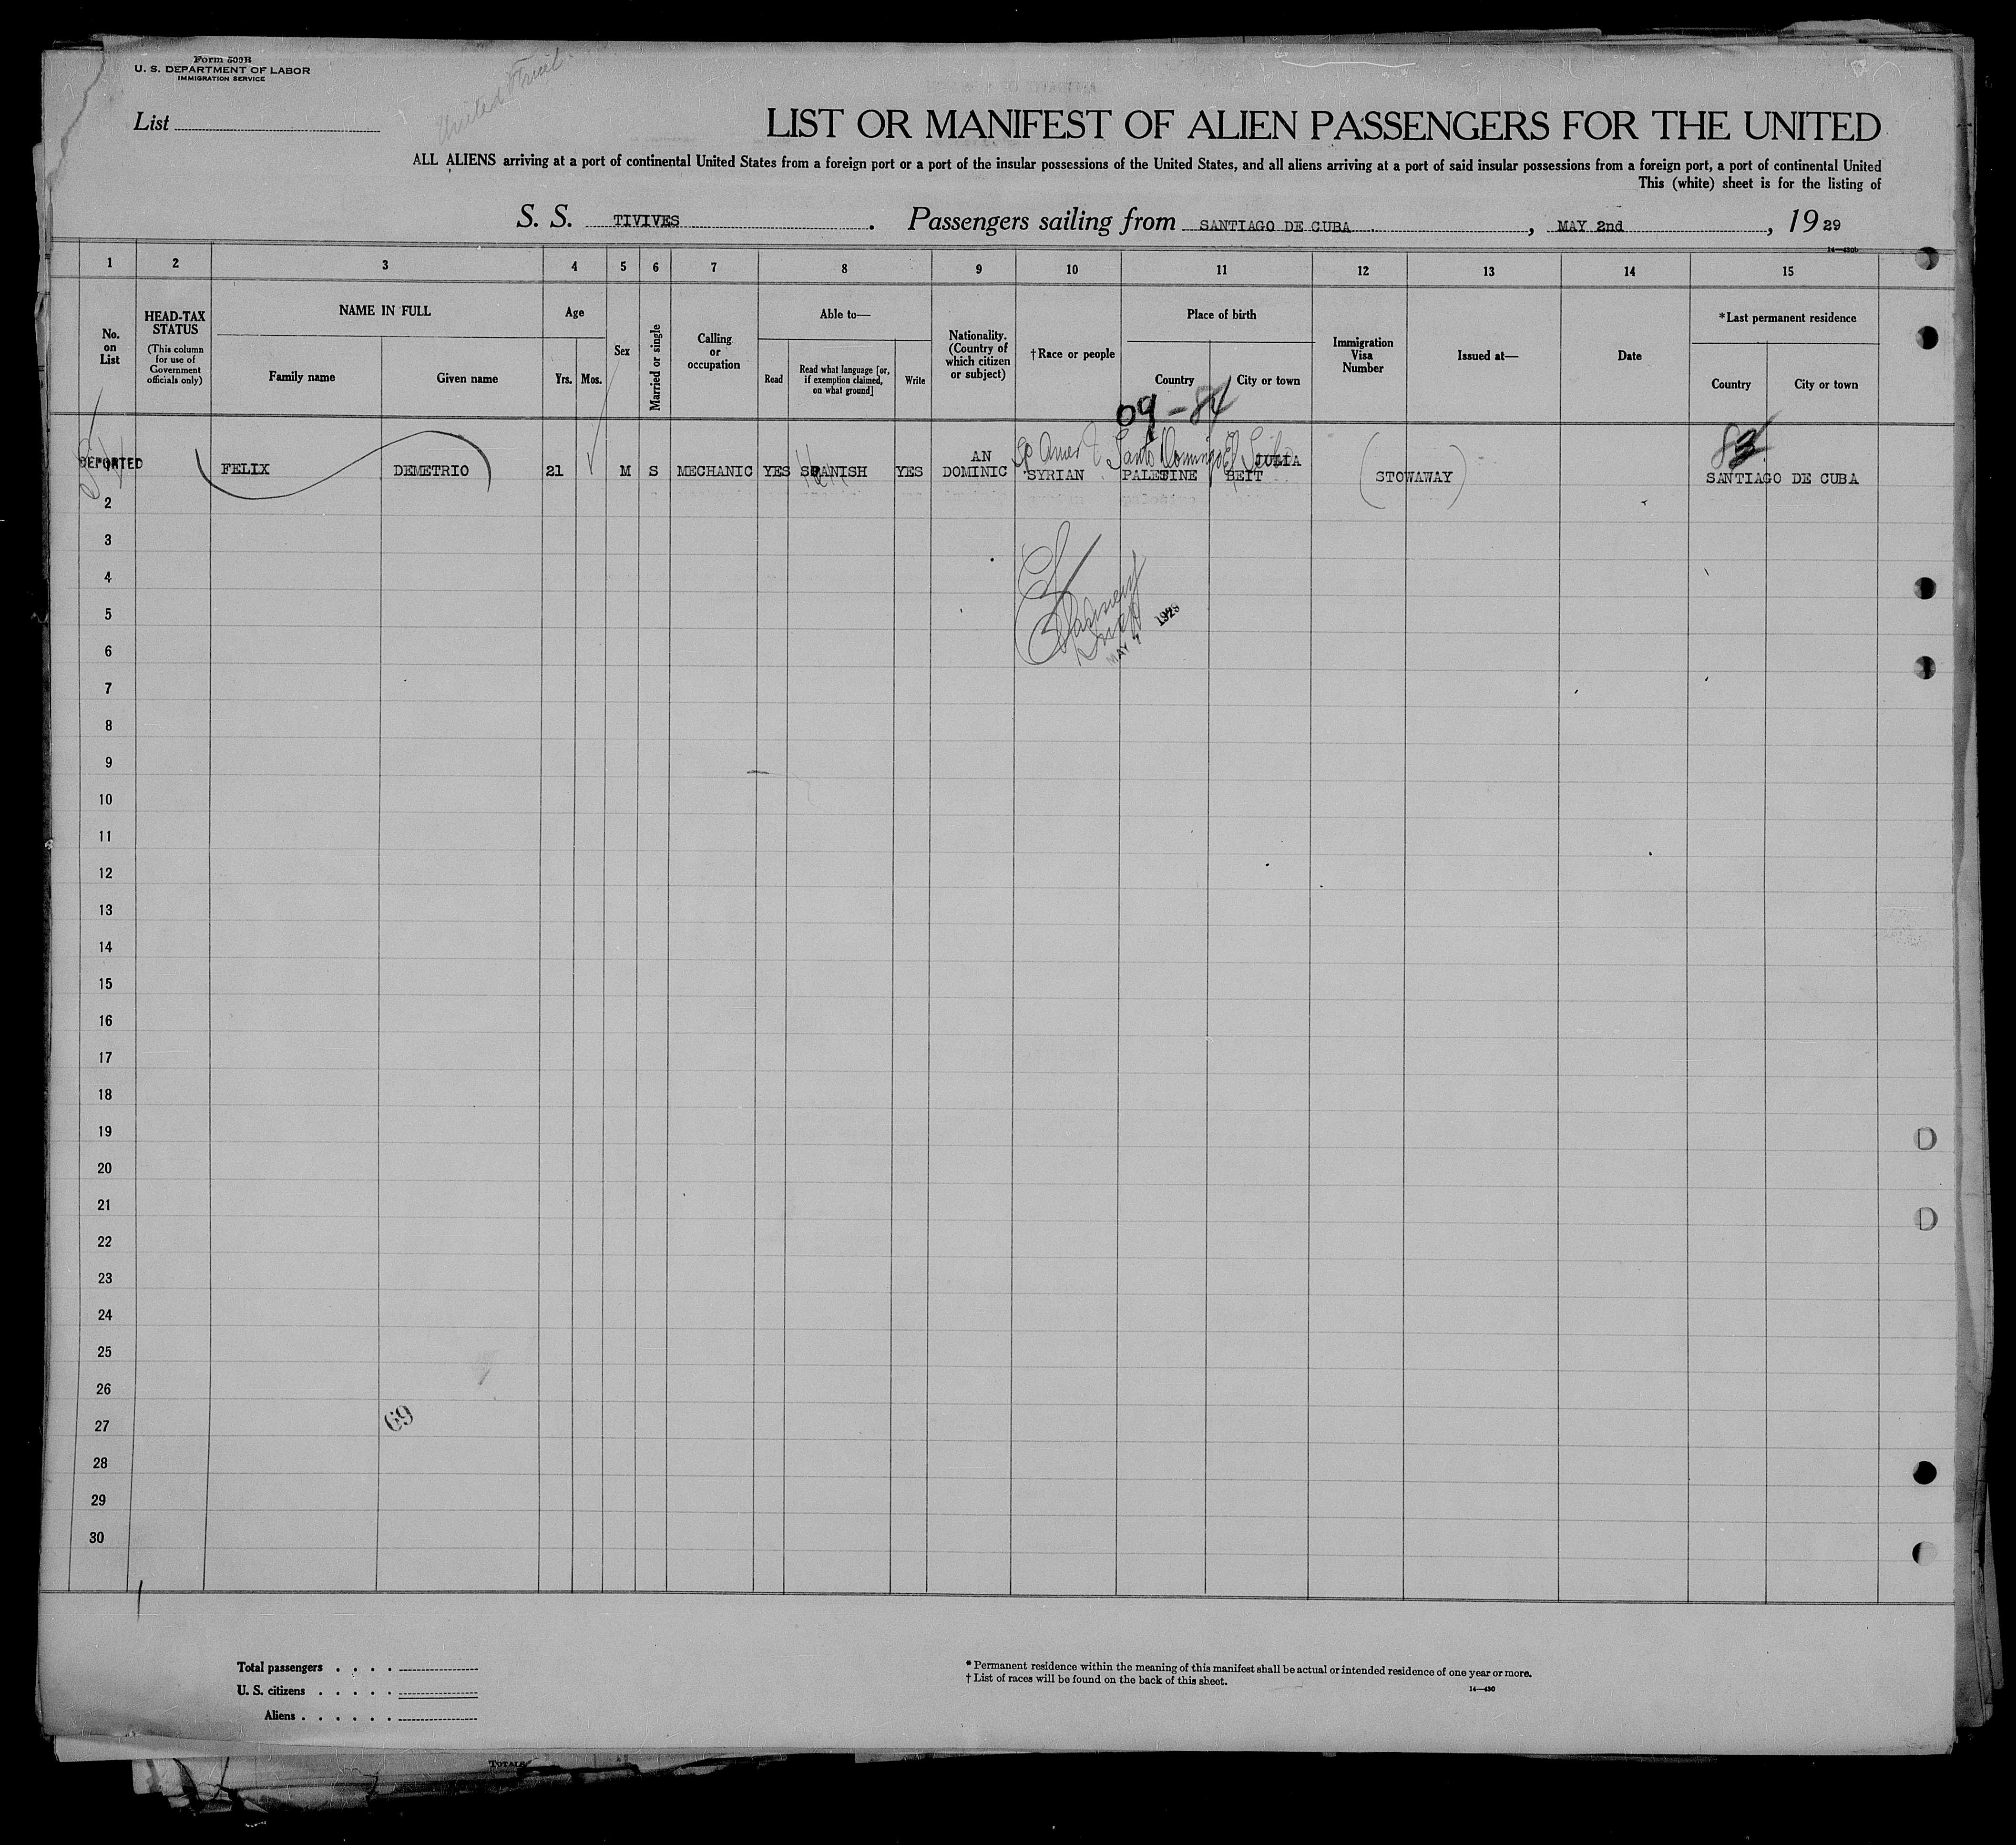 Form 500B
U. S. DEPARTMENT OF LABOR
IMMIGRATION SERVICE
United Fruit
List
LIST OR MANIFEST OF ALIEN PASSENGERS FOR THE UNITED
ALL ALIENS arriving at a port of continental United States from a foreign port or a port of the insular possessions of the United States, and all aliens arriving at a port of said insular possessions from a foreign port, a port of continental United
This (white) sheet is for the listing of
S. S. TIVIVES. Passengers sailing from SANTIAGO DE CUBA, MAY 2nd, 1929
14—430b
1 2 3 4 5 6 7 8 9 10 11 12 13 14 15
No. on List
HEAD-TAX STATUS
(This column for use of Government officials only)
NAME IN FULL
Family name Given name
Age
Yrs. Mos.
Sex
Married or single
Calling or occupation
Able to—
Read
Read what language [or, if exemption claimed, on what ground]
Write
Nationality. (Country of which citizen or subject)
†Race or people
Place of birth
Country City or town
Immigration Visa Number
Issued at—
Date
*Last permanent residence
Country City or town
09-84
Sp Amer Santo Domingo El Seibo
83
AN JULIA
DEPORTED FELIX DEMETRIO 21 M S MECHANIC YES SPANISH YES DOMINIC SYRIAN PALESTINE BEIT STOWAWAY SANTIAGO DE CUBA
2
3
4
5
6
MAY 7 1928
7
8
9
10
11
12
13
14
15
16
17
18
19
20
21
22
23
24
25
26
27
69
28
29
30
Total passengers
U. S. citizens
Aliens
* Permanent residence within the meaning of this manifest shall be actual or intended residence of one year or more.
† List of races will be found on the back of this sheet.
14—430
TOTALS